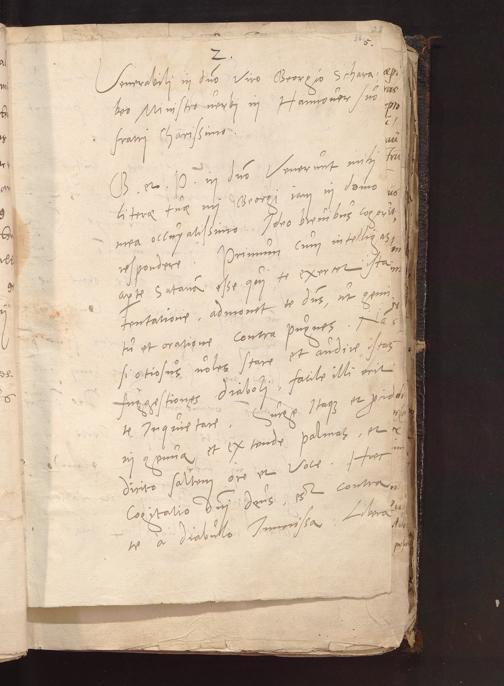 2.
Venerabili in dño viro Georgio Schara
beo Ministro verbi in Hannover suo
fratri charissimo.
G. et P. in dño Venerunt mihi
literæ tuæ mi Georgi iam in domo
mea occupatissimo Ideo brevibus cogor
respondere. Primum cum intelligas
arte Satanæ esse qui te exercet ista
tentatione, admonet te dñs, ut gemi
tu et oratione contra pugnes. Nã
si otiosus voles stare et audire istas
suggestiones diaboli, facile illi erit
te inquietare. Surge Itaqȝ et
in genua et extende palmas, et
dicito saltem ore et voce. Hæc
Cogitatio Dñe deus, est contra
te à diabolo Immissa Libera